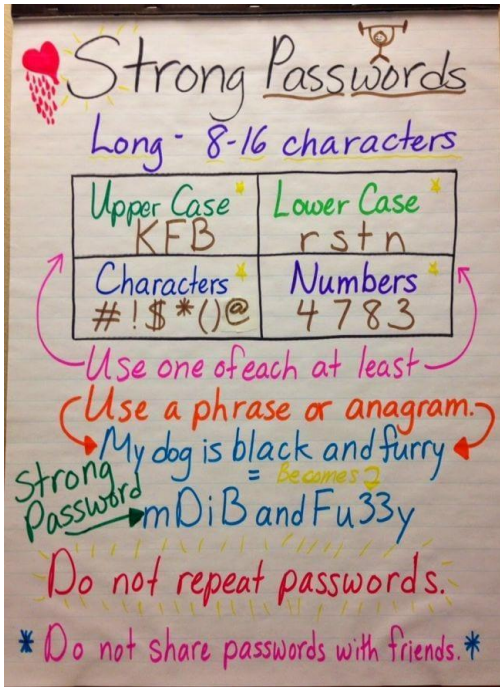 Strong Passwords
Long - 8-16 characters
Upper Case
KFB
Lower Case
rstn
Characters
#!$*()@
Numbers
4783
Use one of each at least
Use a phrase or anagram.
My dog is black and furry
= Becomes
Strong Password
mDiBandFu33y
Do not repeat passwords.
*Do not share passwords with friends.*